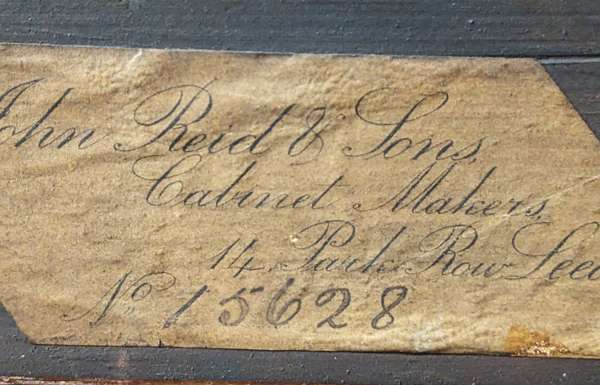 John Reid & Sons,
Cabinet Makers,
14, Park Row Leed
No 15628